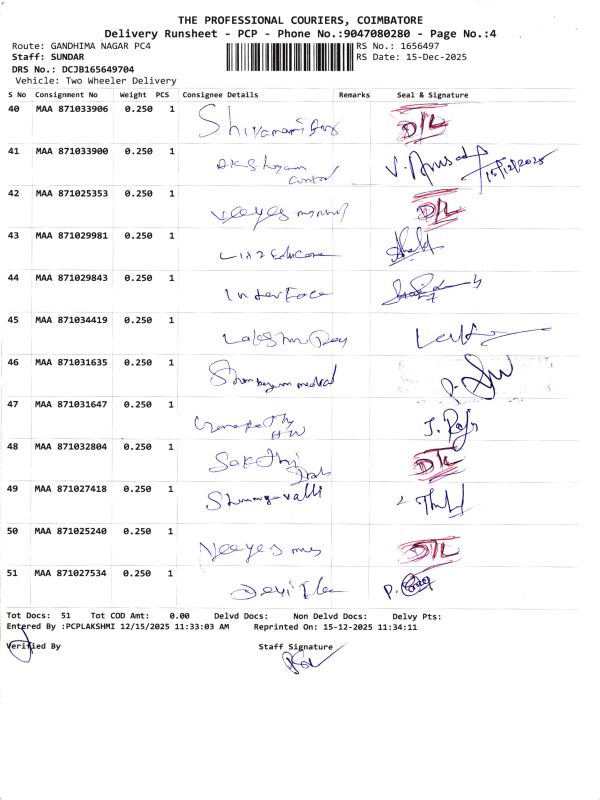 THE PROFESSIONAL COURIERS, COIMBATORE
Delivery Runsheet - PCP - Phone No.:9047080280 - Page No.:4
Route: GANDHIMA NAGAR PC4 RS No.: 1656497
Staff: SUNDAR RS Date: 15-Dec-2025
DRS No.: DCJB165649704
Vehicle: Two Wheeler Delivery
S No Consignment No Weight PCS Consignee Details Remarks Seal & Signature
40 MAA 871033906 0.250 1 D/L
41 MAA 871033900 0.250 1 15/12/2025
42 MAA 871025353 0.250 1 Veeyes D/L
43 MAA 871029981 0.250 1
44 MAA 871029843 0.250 1 Interface
45 MAA 871034419 0.250 1 Lakshmi
46 MAA 871031635 0.250 1 medical
47 MAA 871031647 0.250 1 HW
48 MAA 871032804 0.250 1 Sakthi D/L
49 MAA 871027418 0.250 1 Shanmugavalli
50 MAA 871025240 0.250 1 Veeyes D/L
51 MAA 871027534 0.250 1 Devi
Tot Docs: 51 Tot COD Amt: 0.00 Delvd Docs: Non Delvd Docs: Delvy Pts:
Entered By :PCPLAKSHMI 12/15/2025 11:33:03 AM Reprinted On: 15-12-2025 11:34:11
Verified By Staff Signature